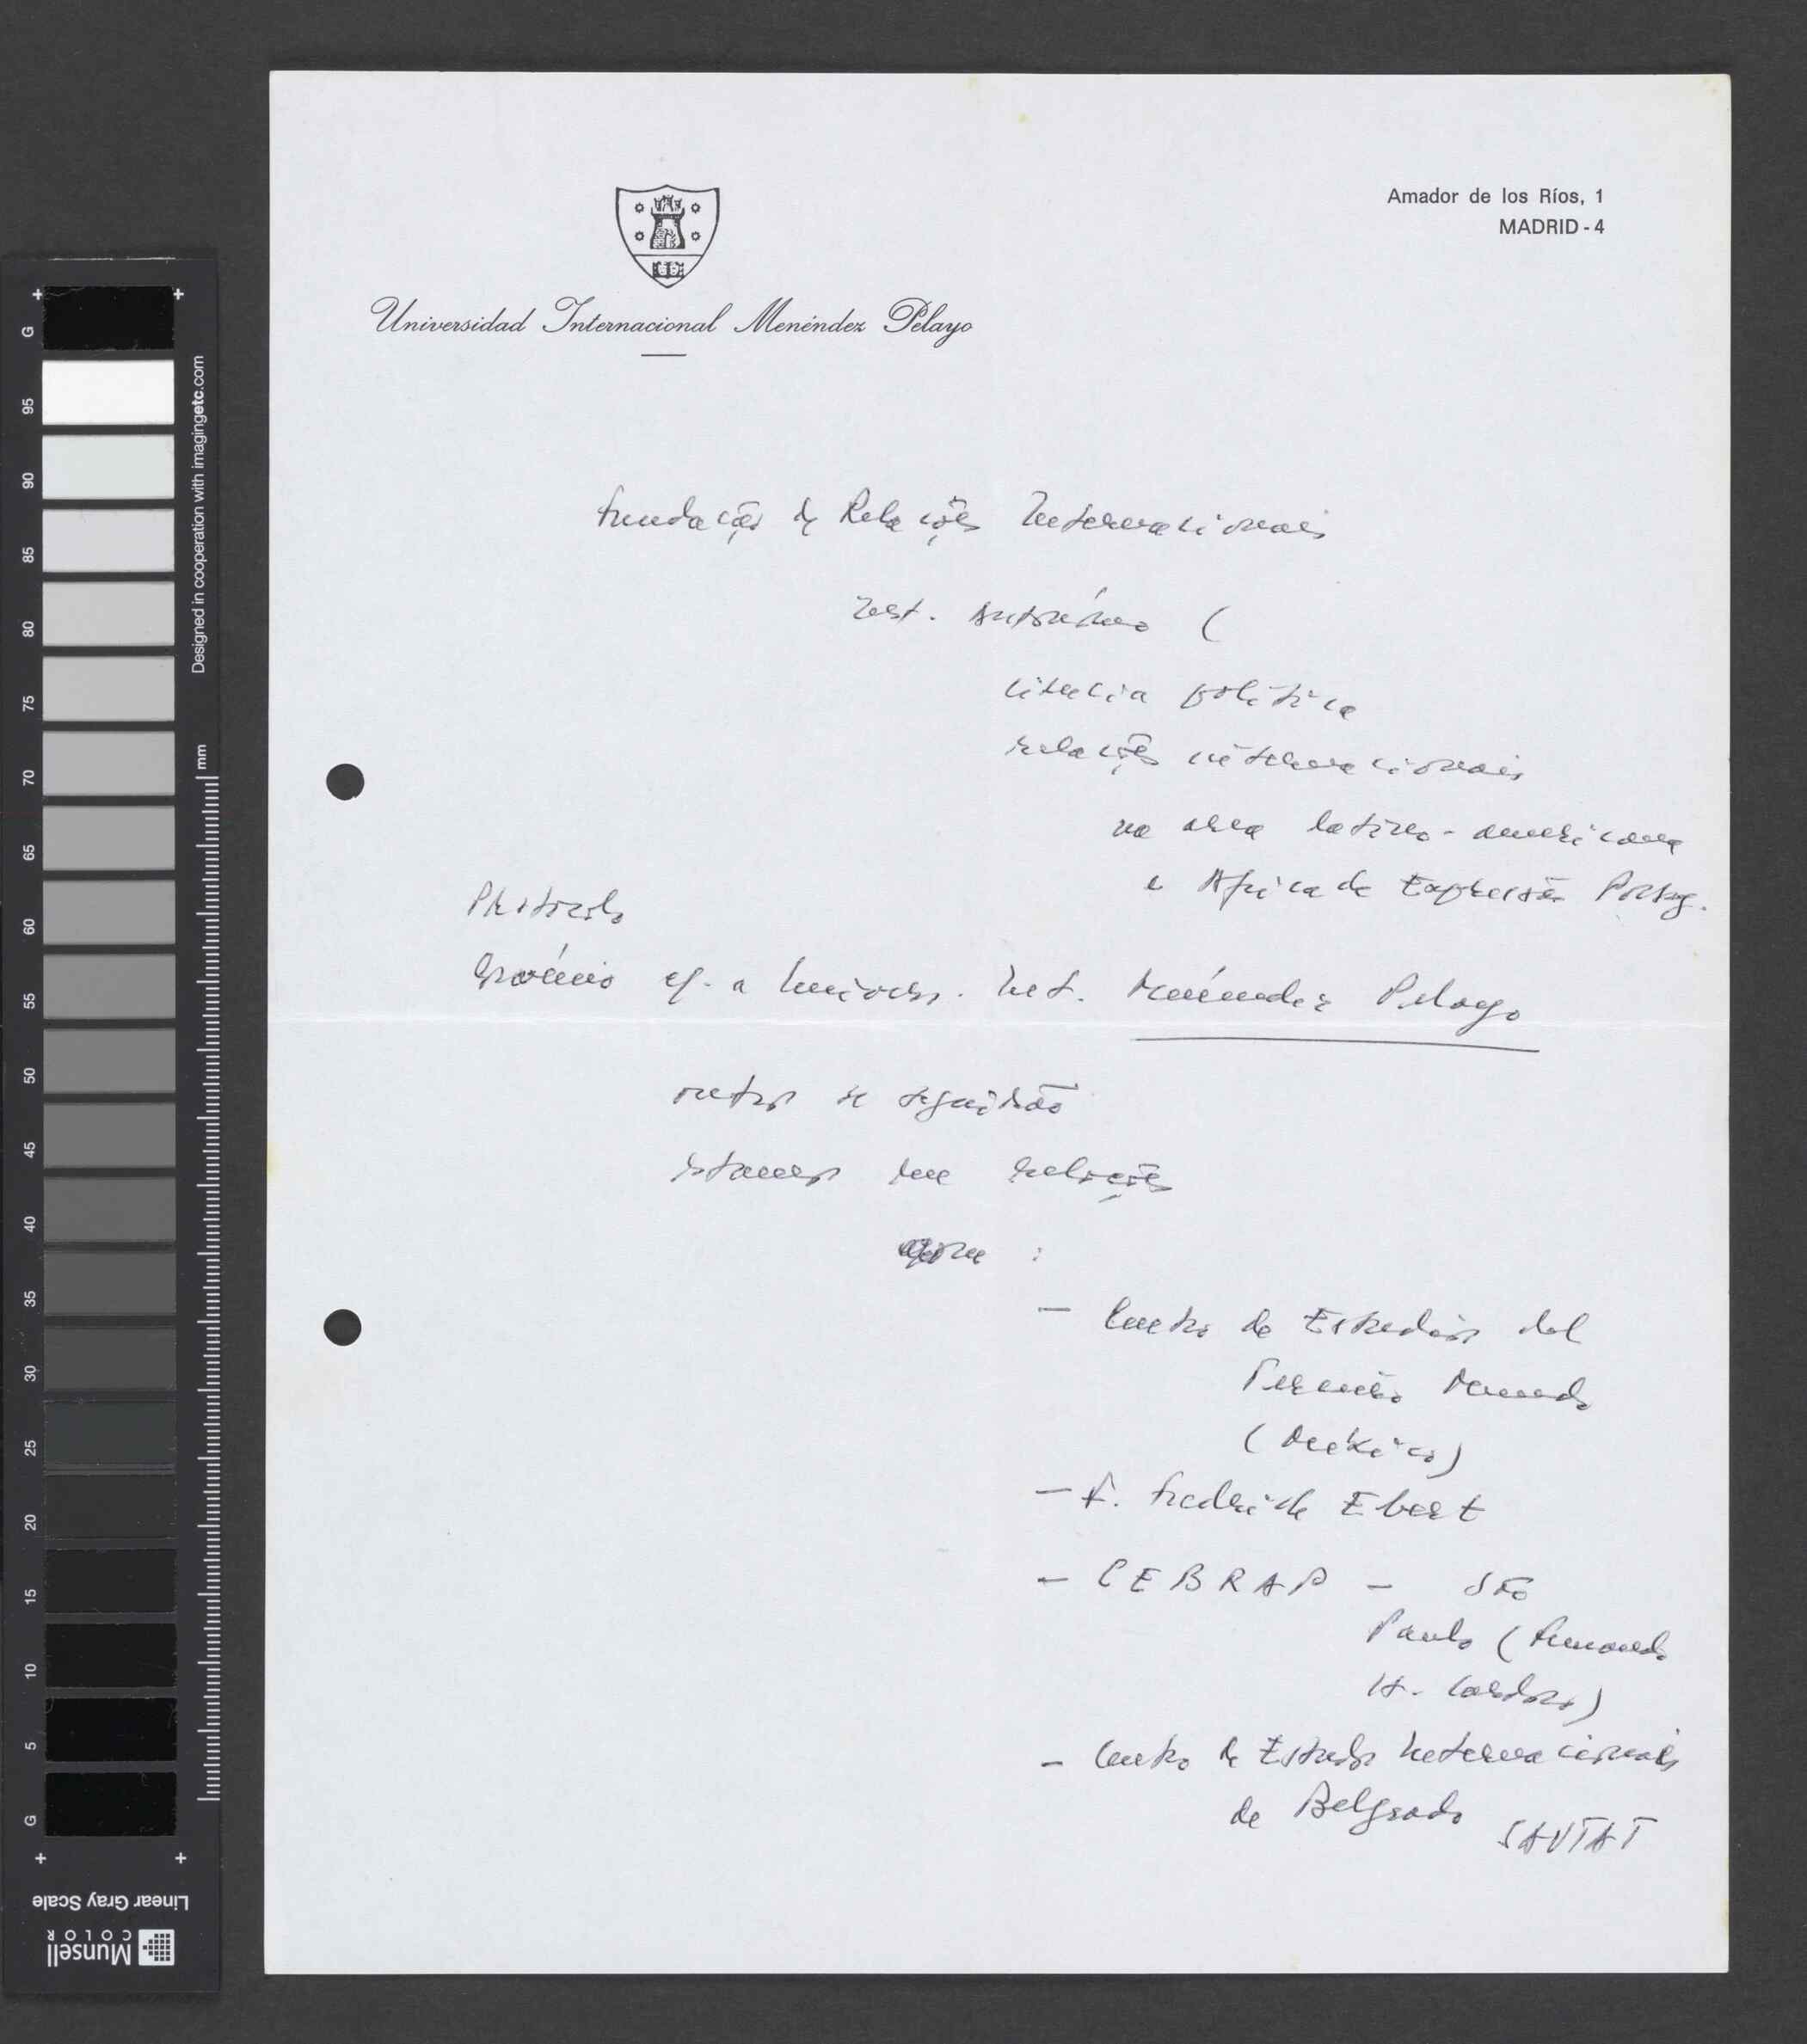 Amador de los Ríos, 1
MADRID - 4
Universidad Internacional Menéndez Pelayo
Fundação de Relações Internacionais
Inst. Autónomo (
ciência política
relações internacionais
na area latino-americana
e Africa de Expressão Portug.
Protocolo
Convénio c/. a Univers. Int. Menéndez Pelayo
outros se seguirão
estamos em relações
com :
- Centro de Estudios del
Tercero Mundo
(México)
- F. Friedrich Ebert
- CEBRAP - São
Paulo (Fernando
H. Cardoso)
- Centro de Estudos Internacionais
de Belgrado
G
95
90
85
80
75
70
65
60
55
50
45
40
35
30
25
20
15
10
5
G
Designed in cooperation with imagingetc.com
mm
Linear Gray Scale
Munsell
COLOR